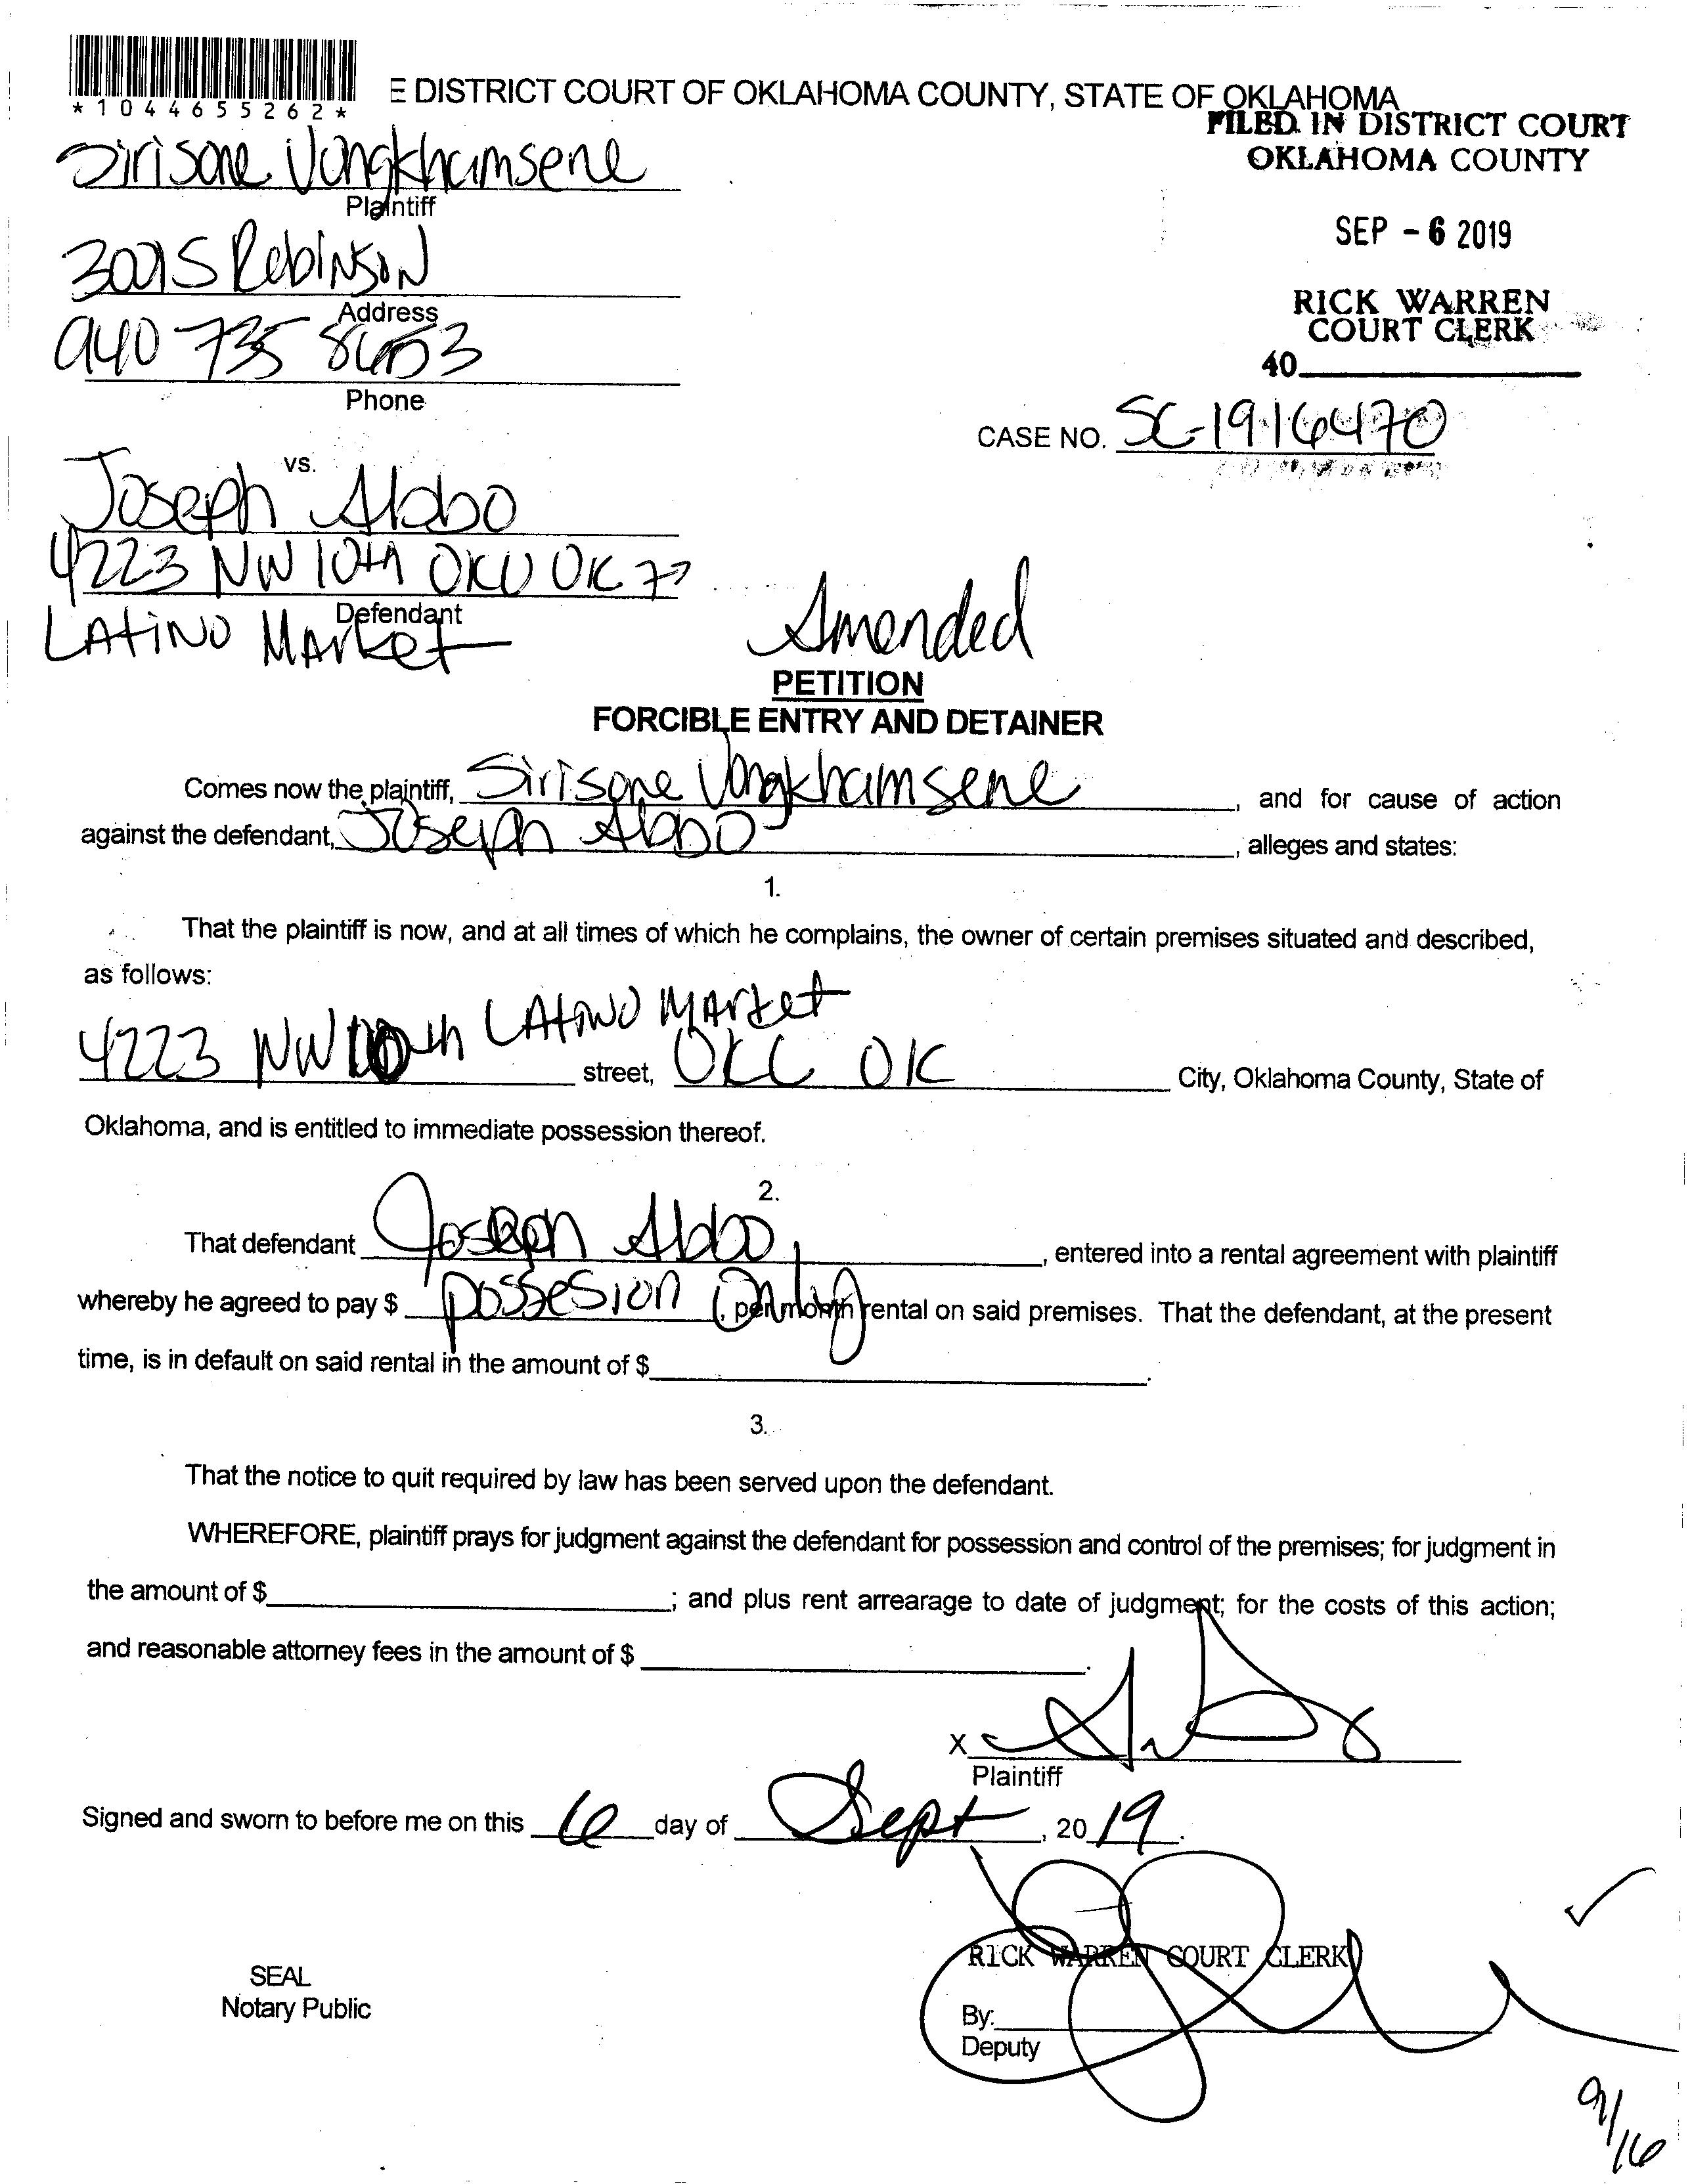 *1044655262*
E DISTRICT COURT OF OKLAHOMA COUNTY, STATE OF OKLAHOMA
FILED IN DISTRICT COURT
OKLAHOMA COUNTY
SEP - 6 2019
RICK WARREN
COURT CLERK
40
Sirisone Vongkhamsene
Plaintiff
S Robinson
Address
940 735
Phone
CASE NO. SC-1916470
vs.
Joseph Abbo
4223 NW 10th OKC OK 77
Defendant
LAtiNO MArket
Amended
PETITION
FORCIBLE ENTRY AND DETAINER
Comes now the plaintiff, Sirisone Vongkhamsene, and for cause of action
against the defendant, Joseph Abbo, alleges and states:
1.
That the plaintiff is now, and at all times of which he complains, the owner of certain premises situated and described,
as follows:
LAtiNO MArket
4223 NW 10th street, OKC OK City, Oklahoma County, State of
Oklahoma, and is entitled to immediate possession thereof.
2.
That defendant Joseph Abbo, entered into a rental agreement with plaintiff
whereby he agreed to pay $ possesion Only, per month rental on said premises. That the defendant, at the present
time, is in default on said rental in the amount of $ .
3.
That the notice to quit required by law has been served upon the defendant.
WHEREFORE, plaintiff prays for judgment against the defendant for possession and control of the premises; for judgment in
the amount of $ ; and plus rent arrearage to date of judgment; for the costs of this action;
and reasonable attorney fees in the amount of $ .
X
Plaintiff
Signed and sworn to before me on this 6 day of Sept, 2019.
RICK WARREN COURT CLERK
SEAL
Notary Public
By:
Deputy
9/16